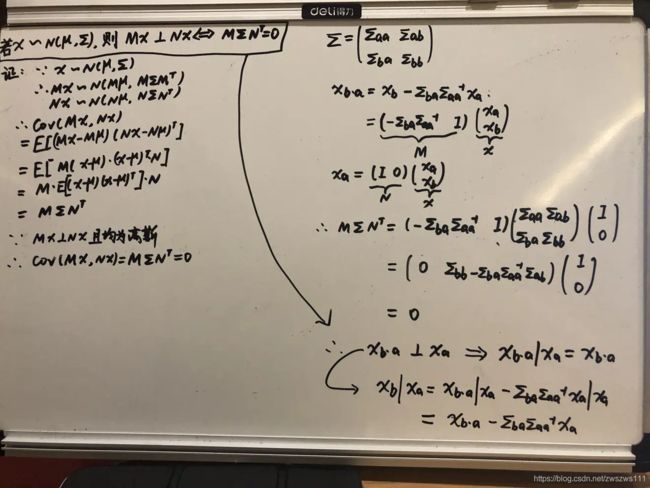 deli得力
若X ~ N(μ,Σ), 则 MX ⊥ NX ⇔ MΣN^T=0
证: ∵ X ~ N(μ,Σ)
∴ MX ~ N(Mμ, MΣM^T)
NX ~ N(Nμ, NΣN^T)
∴ Cov(MX, NX)
= E[(MX-Mμ)(NX-Nμ)^T]
= E[M(X-μ)·(X-μ)^T·N]
= M·E[(X-μ)(X-μ)^T]·N
= MΣN^T
∵ MX⊥NX 且均为高斯
∴ Cov(MX, NX)=MΣN^T=0
Σ = (Σaa Σab
Σba Σbb)
Xb·a = Xb - ΣbaΣaa^-1Xa.
= (-ΣbaΣaa^-1 I) (Xa
Xb)
M X
Xa = (I 0) (Xa
Xb)
N X
∴ MΣN^T = (-ΣbaΣaa^-1 I) (Σaa Σab
Σba Σbb) (I
0)
= (0 Σbb-ΣbaΣaa^-1Σab) (I
0)
= 0
∴ Xb·a ⊥ Xa ⇒ Xb·a|Xa = Xb·a
Xb|Xa = Xb·a|Xa - ΣbaΣaa^-1Xa|Xa
= Xb·a - ΣbaΣaa^-1Xa
https://blog.csdn.net/zwszws111